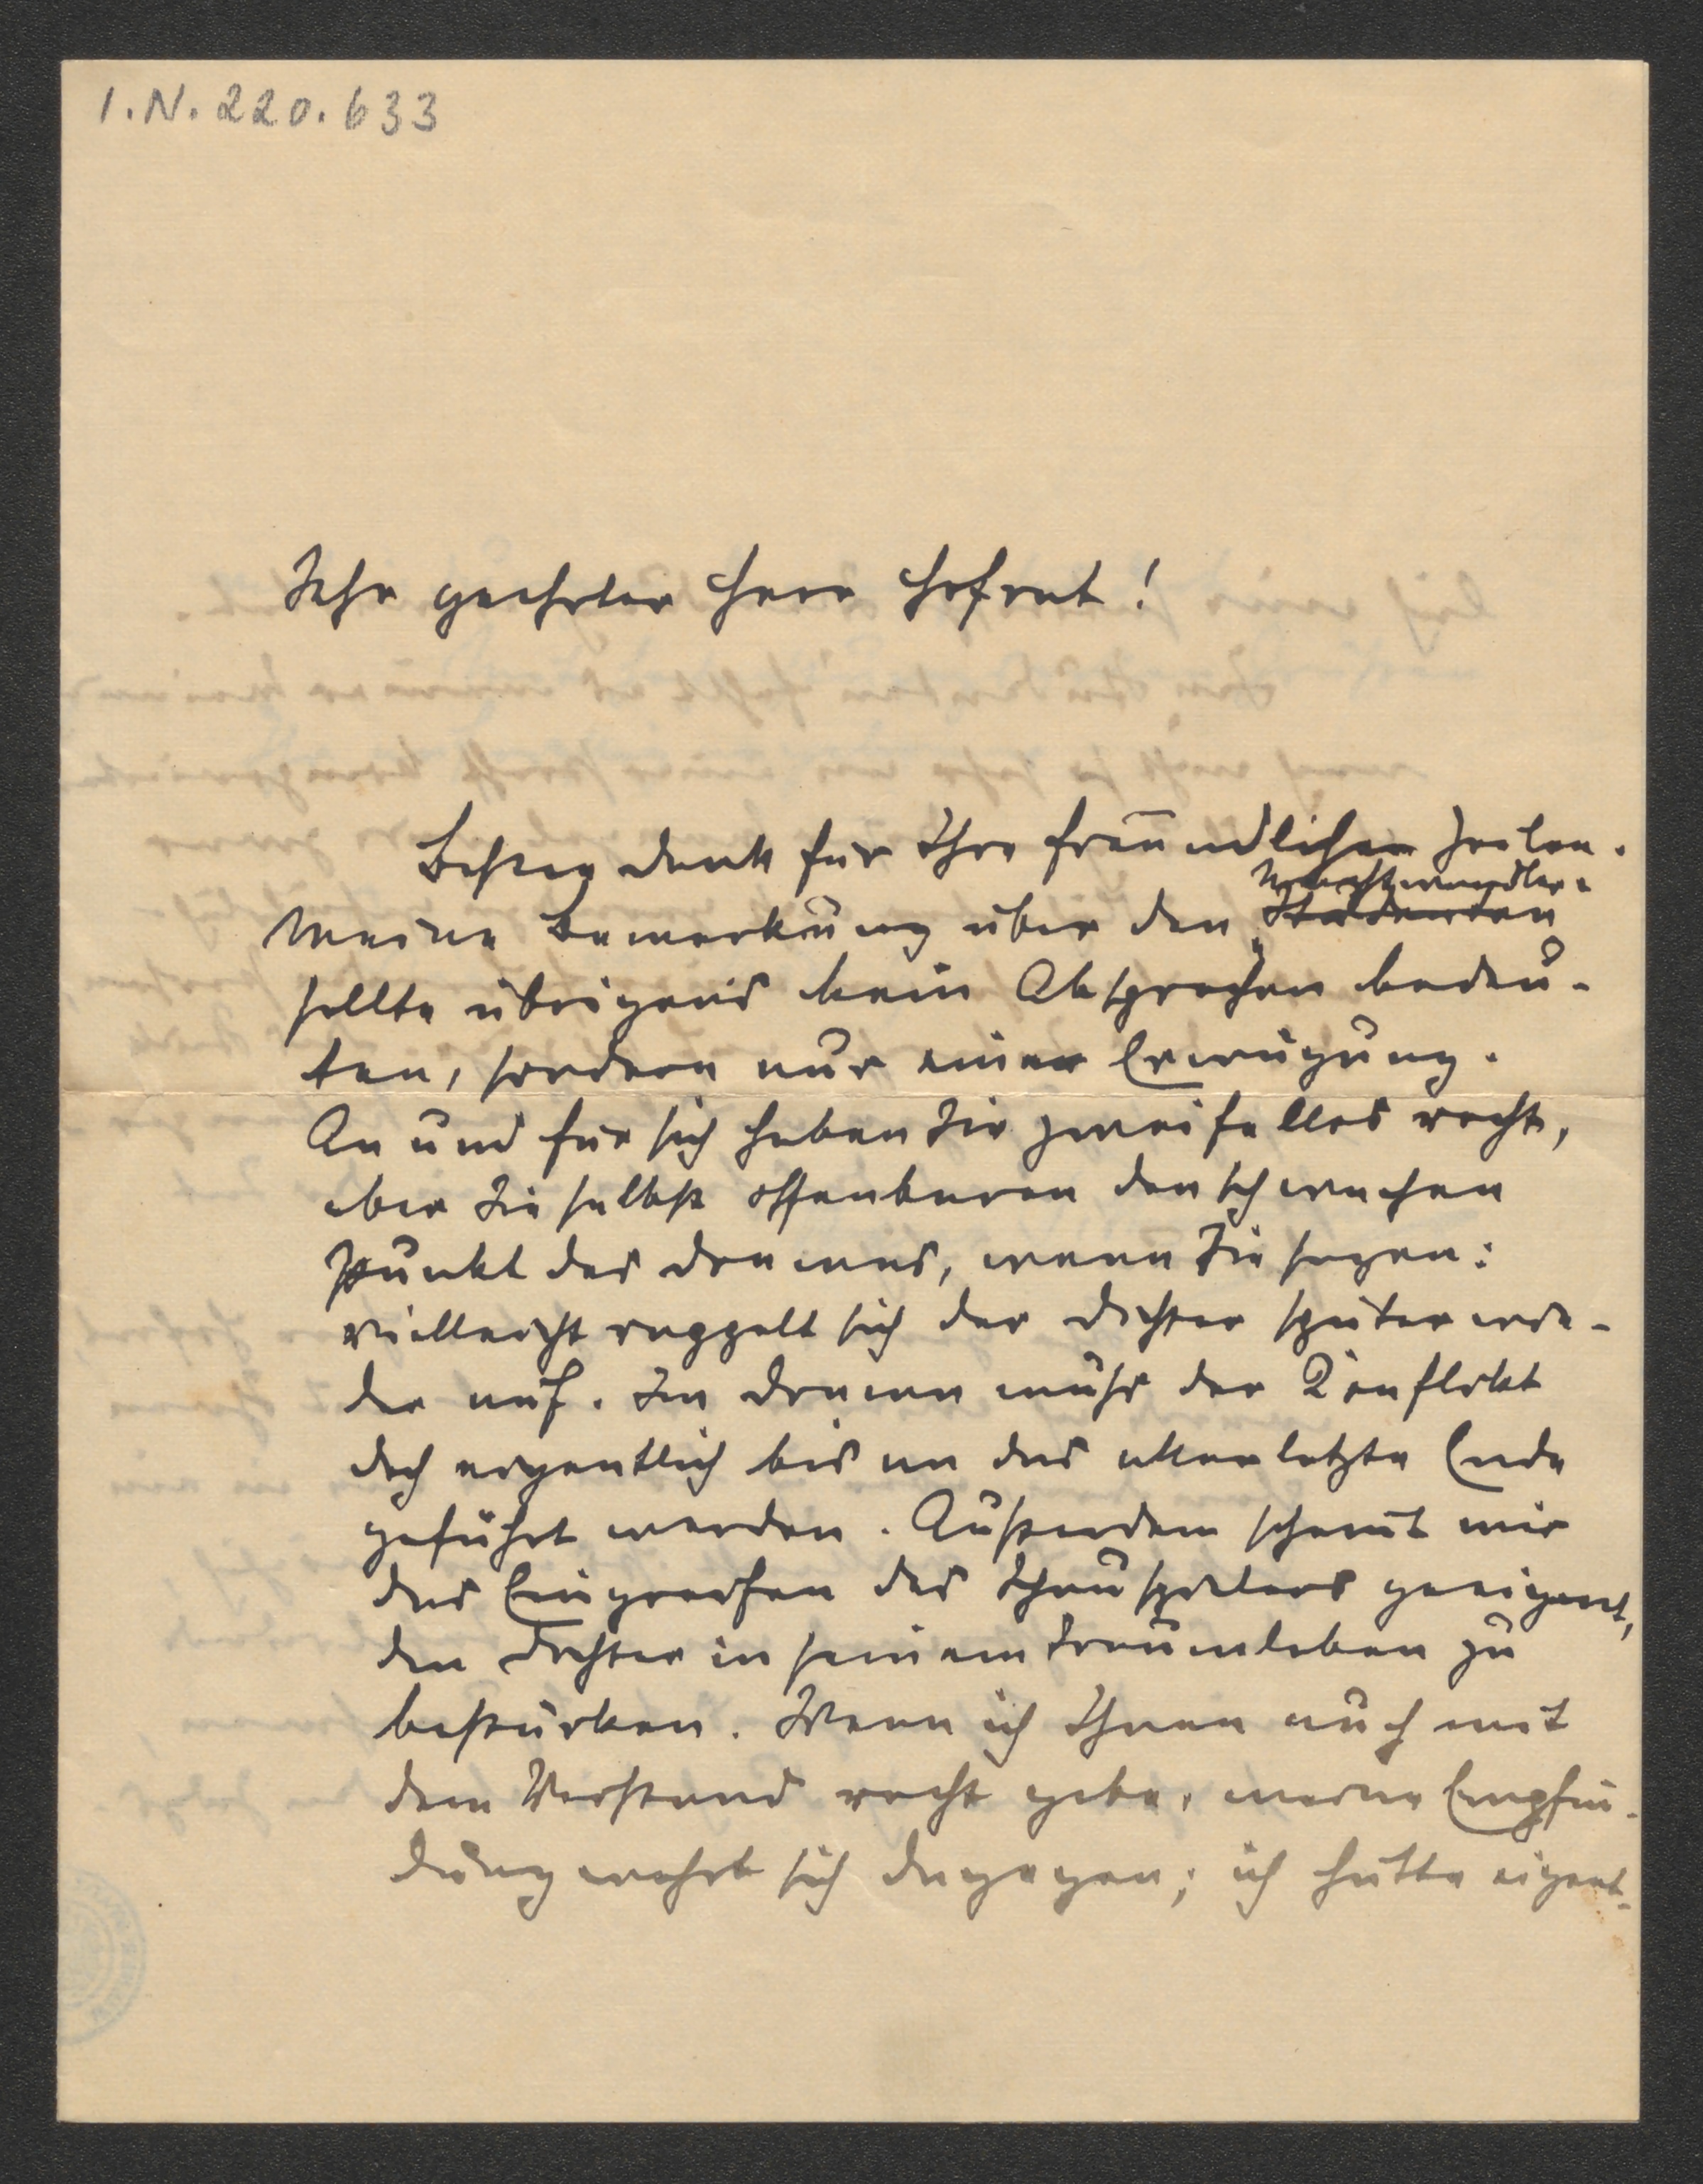 I.N. 220.633
Sehr geehrter Herr Hofrat!
Besten Dank für Ihre freundlichen Zeilen.
Nachtwandler"
Meine Bemerkung über den „Studenten
sollte übrigens kein Absprechen bedeu-
ten, sondern nur eine Erwägung.
An und für sich haben Sie zweifellos recht,
aber Sie selbst offenbaren den schwachen
Punkt des Dramas, wenn Sie sagen:
vielleicht rappelt sich der Dichter später wie-
der auf. Im Drama muß der Konflikt
doch eigentlich bis an das allerletzte Ende
geführt werden. Außerdem scheint mir
das Eingreifen des Schauspielers geeignet,
den Dichter in seinem Traumleben zu
bestärken. Wenn ich Ihnen auch mit
dem Verstand recht gebe, meine Empfin-
dung wehrt sich dagegen; ich hätte eigent-